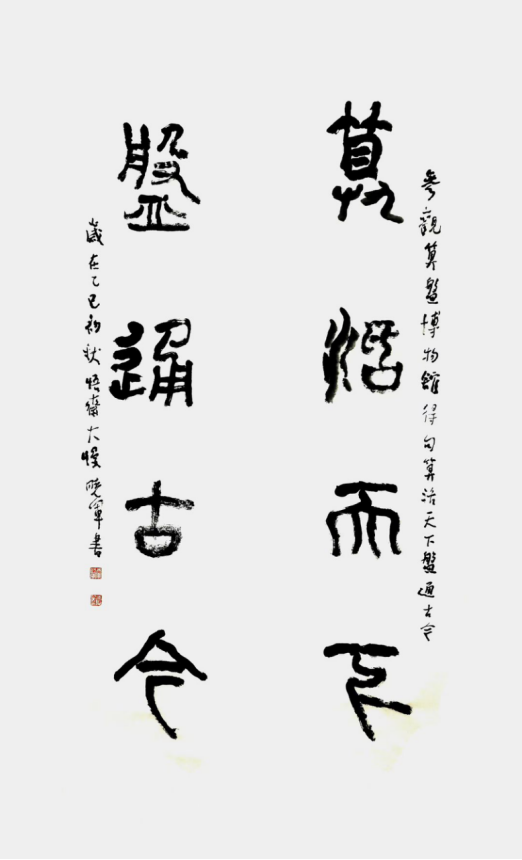 参觀算盤博物館得句算活天下盤通古今
算活天下
盤通古今
歲在乙巳初秋悟齋大慢曉軍書